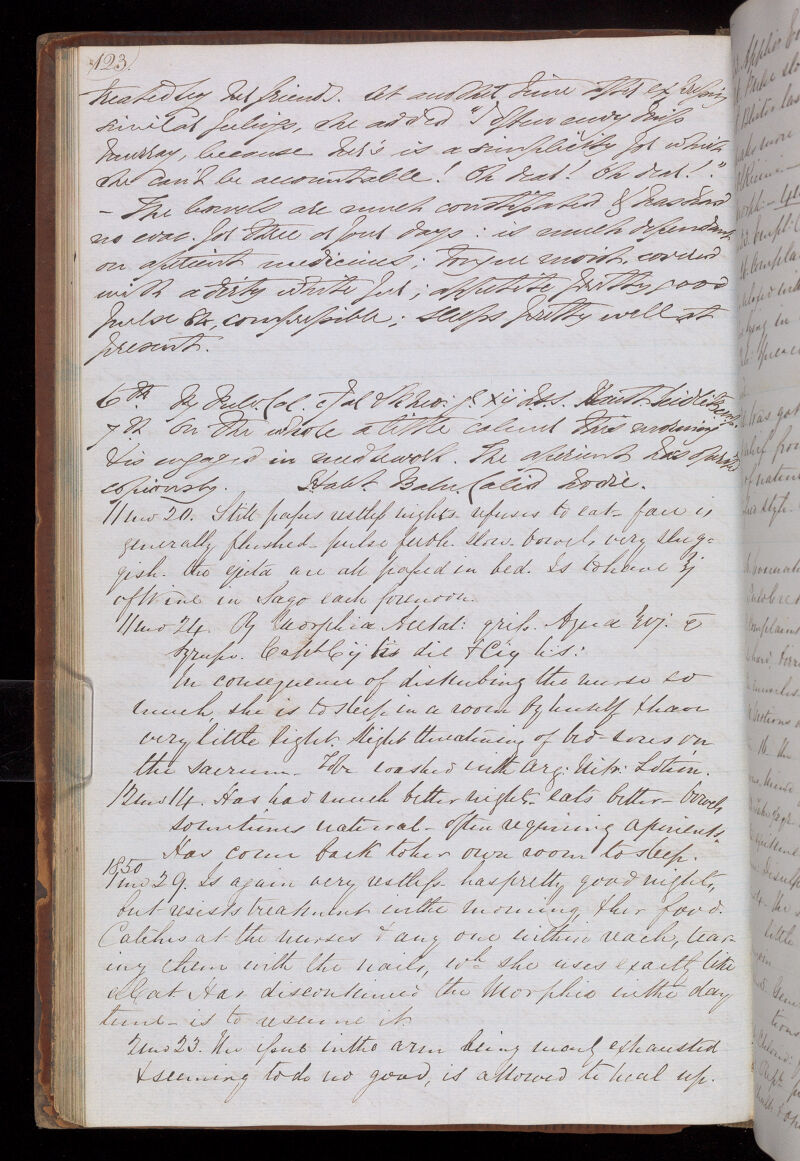 123.
treated by her friends. At another time after expressing
similar feelings, she added "I often envy Miss
Murray, because her's is a simplicity for which
she can't be accountable! Oh dear! Oh dear!."
- The bowels are much constipated & has had
no evac. for three or four days: is much dependant
on aperient medicines; tongue moist, covered
with a dirty white fur; appetite pretty good
pulse 84, compressible; sleeps pretty well at
present.
6th Ry Pulv. Cal. c Jal & Rhei. Haust.
7th On the whole a little calmer this morning
& is engaged in needlework. The aperient has operated
copiously. Habt. Baln. Calid hodie.
11 mo 20. Still passes restless nights refuses to eat - face is
generally flushed - pulse feeble slow. bowels very slug-
gish. the ejecta are all passed in bed. Is to have ℥j
of Wine in Sago each forenoon.
11 mo 24. Ry Morphia Acetat: Aqua ℥vj. c
Syrup. Capt Cij bis die & Ciij h.s:
In consequence of disturbing the nurse so
much, she is to sleep in a room by herself & have
very little light. Slight threatening of bed-sores on
the sacrum. To be washed with Arg: Nitr: Lotion.
12 mo 14. Has had much better nights - eats better - bowels
sometimes natural - often requiring aperients.
Has come back to her own room to sleep.
1850
1 mo 29. Is again very restless. has pretty good nights,
but resists treatment in the morning & her food.
Catches at the nurses & any one within reach, tear-
ing them with the nails, wh she uses exactly like
a Cat. Has discontinued the Morphia in the day
time - is to resume it.
2 mo 23. The issue in the arm being nearly exhausted
& seeming to do no good, is allowed to heal up.